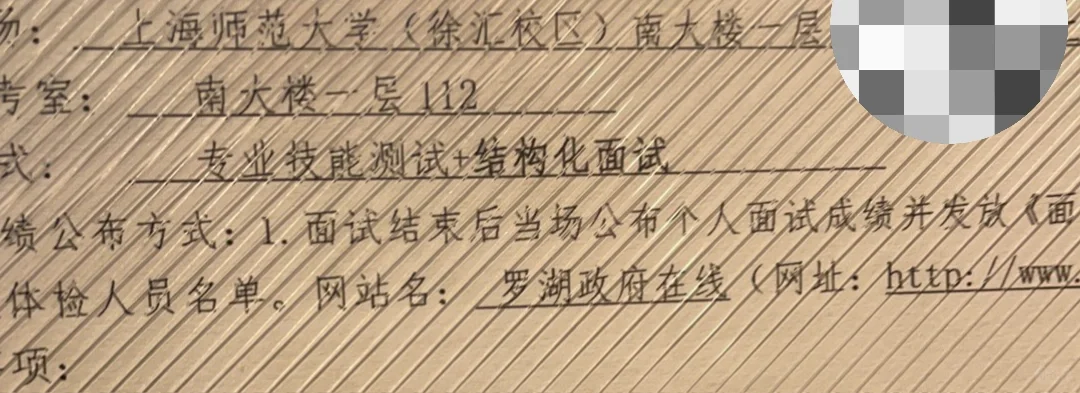 场：上海师范大学（徐汇校区）南大楼一层
考室：南大楼一层112
式：专业技能测试+结构化面试
绩公布方式：1. 面试结束后当场公布个人面试成绩并发放《面
体检人员名单。网站名：罗湖政府在线（网址：http://www.
项：